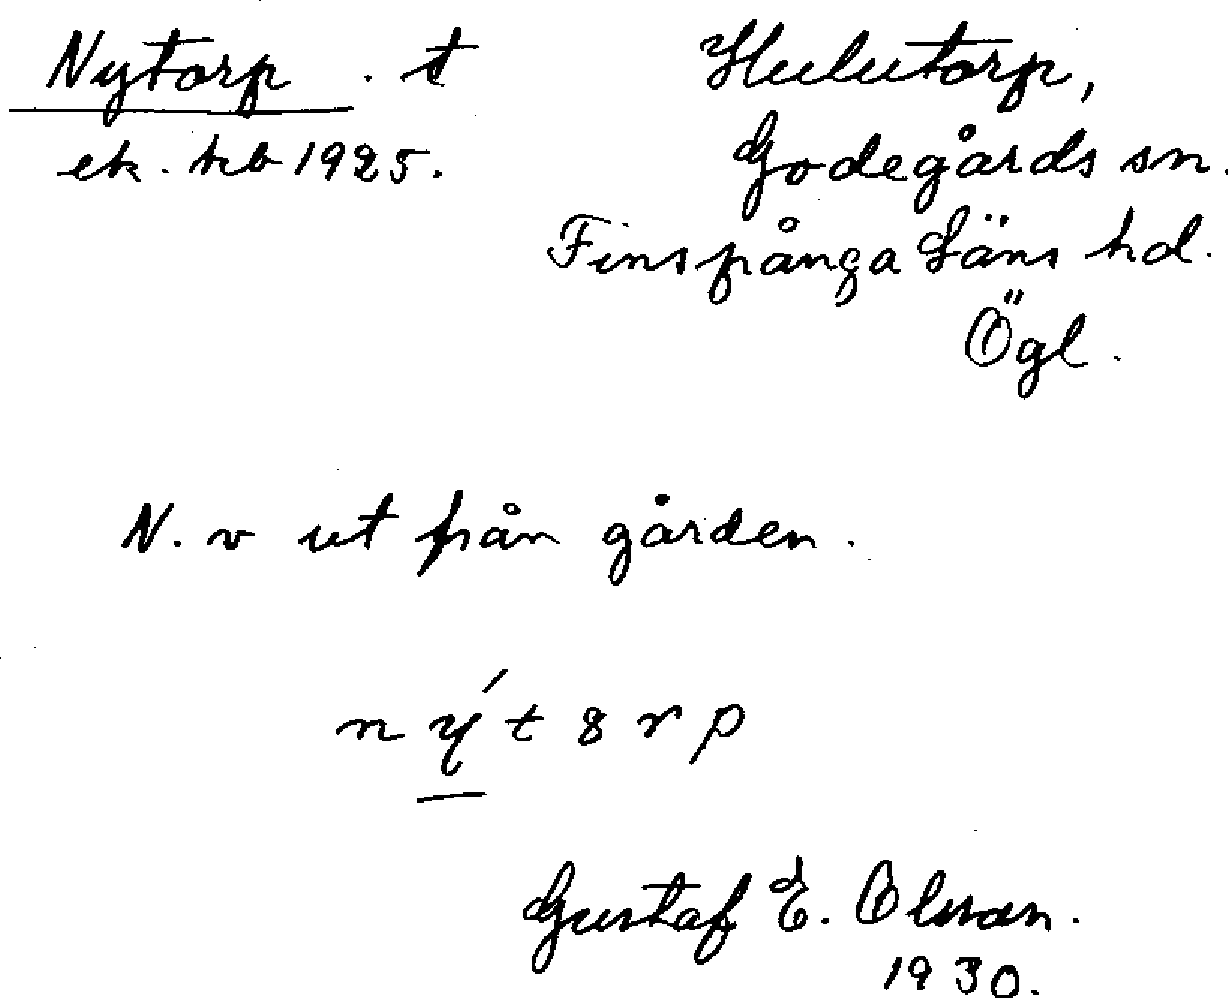 Nytorp . t
ek. kb 1925.
Hulutorp,
Godegårds sn.
Finspånga Läns hd.
Ögl.
N. v ut från gården.
n ý t 8 r p
Gustaf E. Olsson.
1930.